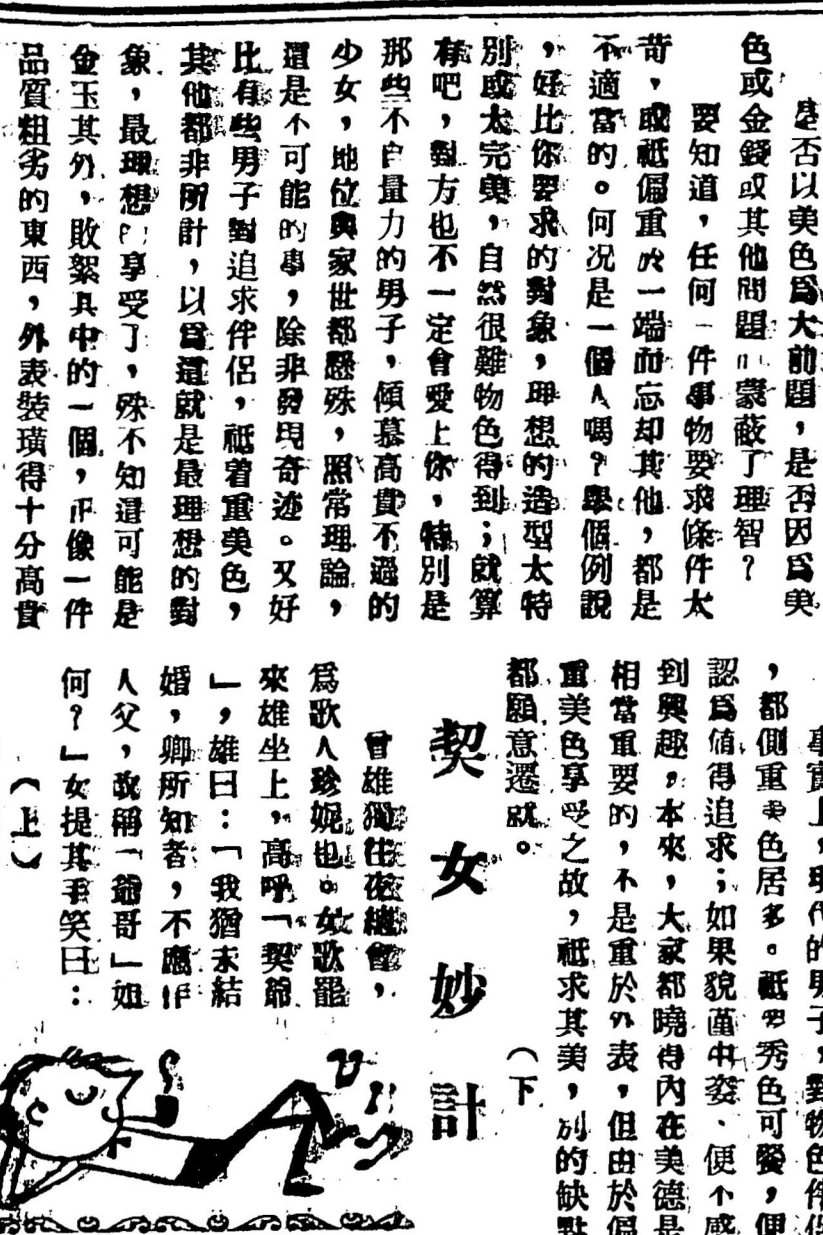 是否以美色爲大前題,是否因爲美
色或金錢或其他問題而蒙蔽了理智?
要知道,任何一件事物要求條件太
苛,或祇偏重於一端而忘却其他,都是
不適當的。何况是一個人嗎?舉個例說
,好比你要求的對象,理想的造型太特
別或太完美,自然很難物色得到;就算
有吧,對方也不一定會愛上你,特別是
那些不自量力的男子,傾慕高貴不過的
少女,地位與家世都懸殊,照常理論,
還是不可能的事,除非發現奇迹。又好
比有些男子對追求伴侶,祇着重美色,
其他都非所計,以爲這就是最理想的對
象,最理想的享受了,殊不知這可能是
金玉其外,敗絮其中的一個,正像一件
品質粗劣的東西,外表裝璜得十分高貴
事實上,現代的男子,對物色伴侶
,都側重美色居多。祇要秀色可餐,便
認爲値得追求;如果貌僅中姿、便不感
到興趣,本來,大家都曉得內在美德是
相當重要的,不是重於外表,但由於偏
重美色享受之故,祇求其美,別的缺點
都願意遷就。
(下
契女妙計
曾雄獨往夜總會,
爲歌人珍妮也。女歌罷
來雄坐上,高呼「契爺
」,雄曰:「我猶未結
婚,卿所知者,不應作
人父,改稱「爺哥」如
何?」女提其手笑曰:
(上)